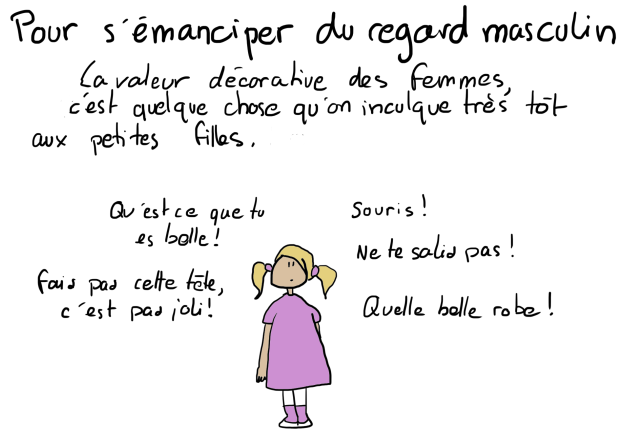 Pour s'émanciper du regard masculin
La valeur décorative des femmes,
c'est quelque chose qu'on inculque très tôt
aux petites filles.
Qu'est ce que tu
es belle !
Fais pas cette tête,
c'est pas joli !
Souris !
Ne te salis pas !
Quelle belle robe !